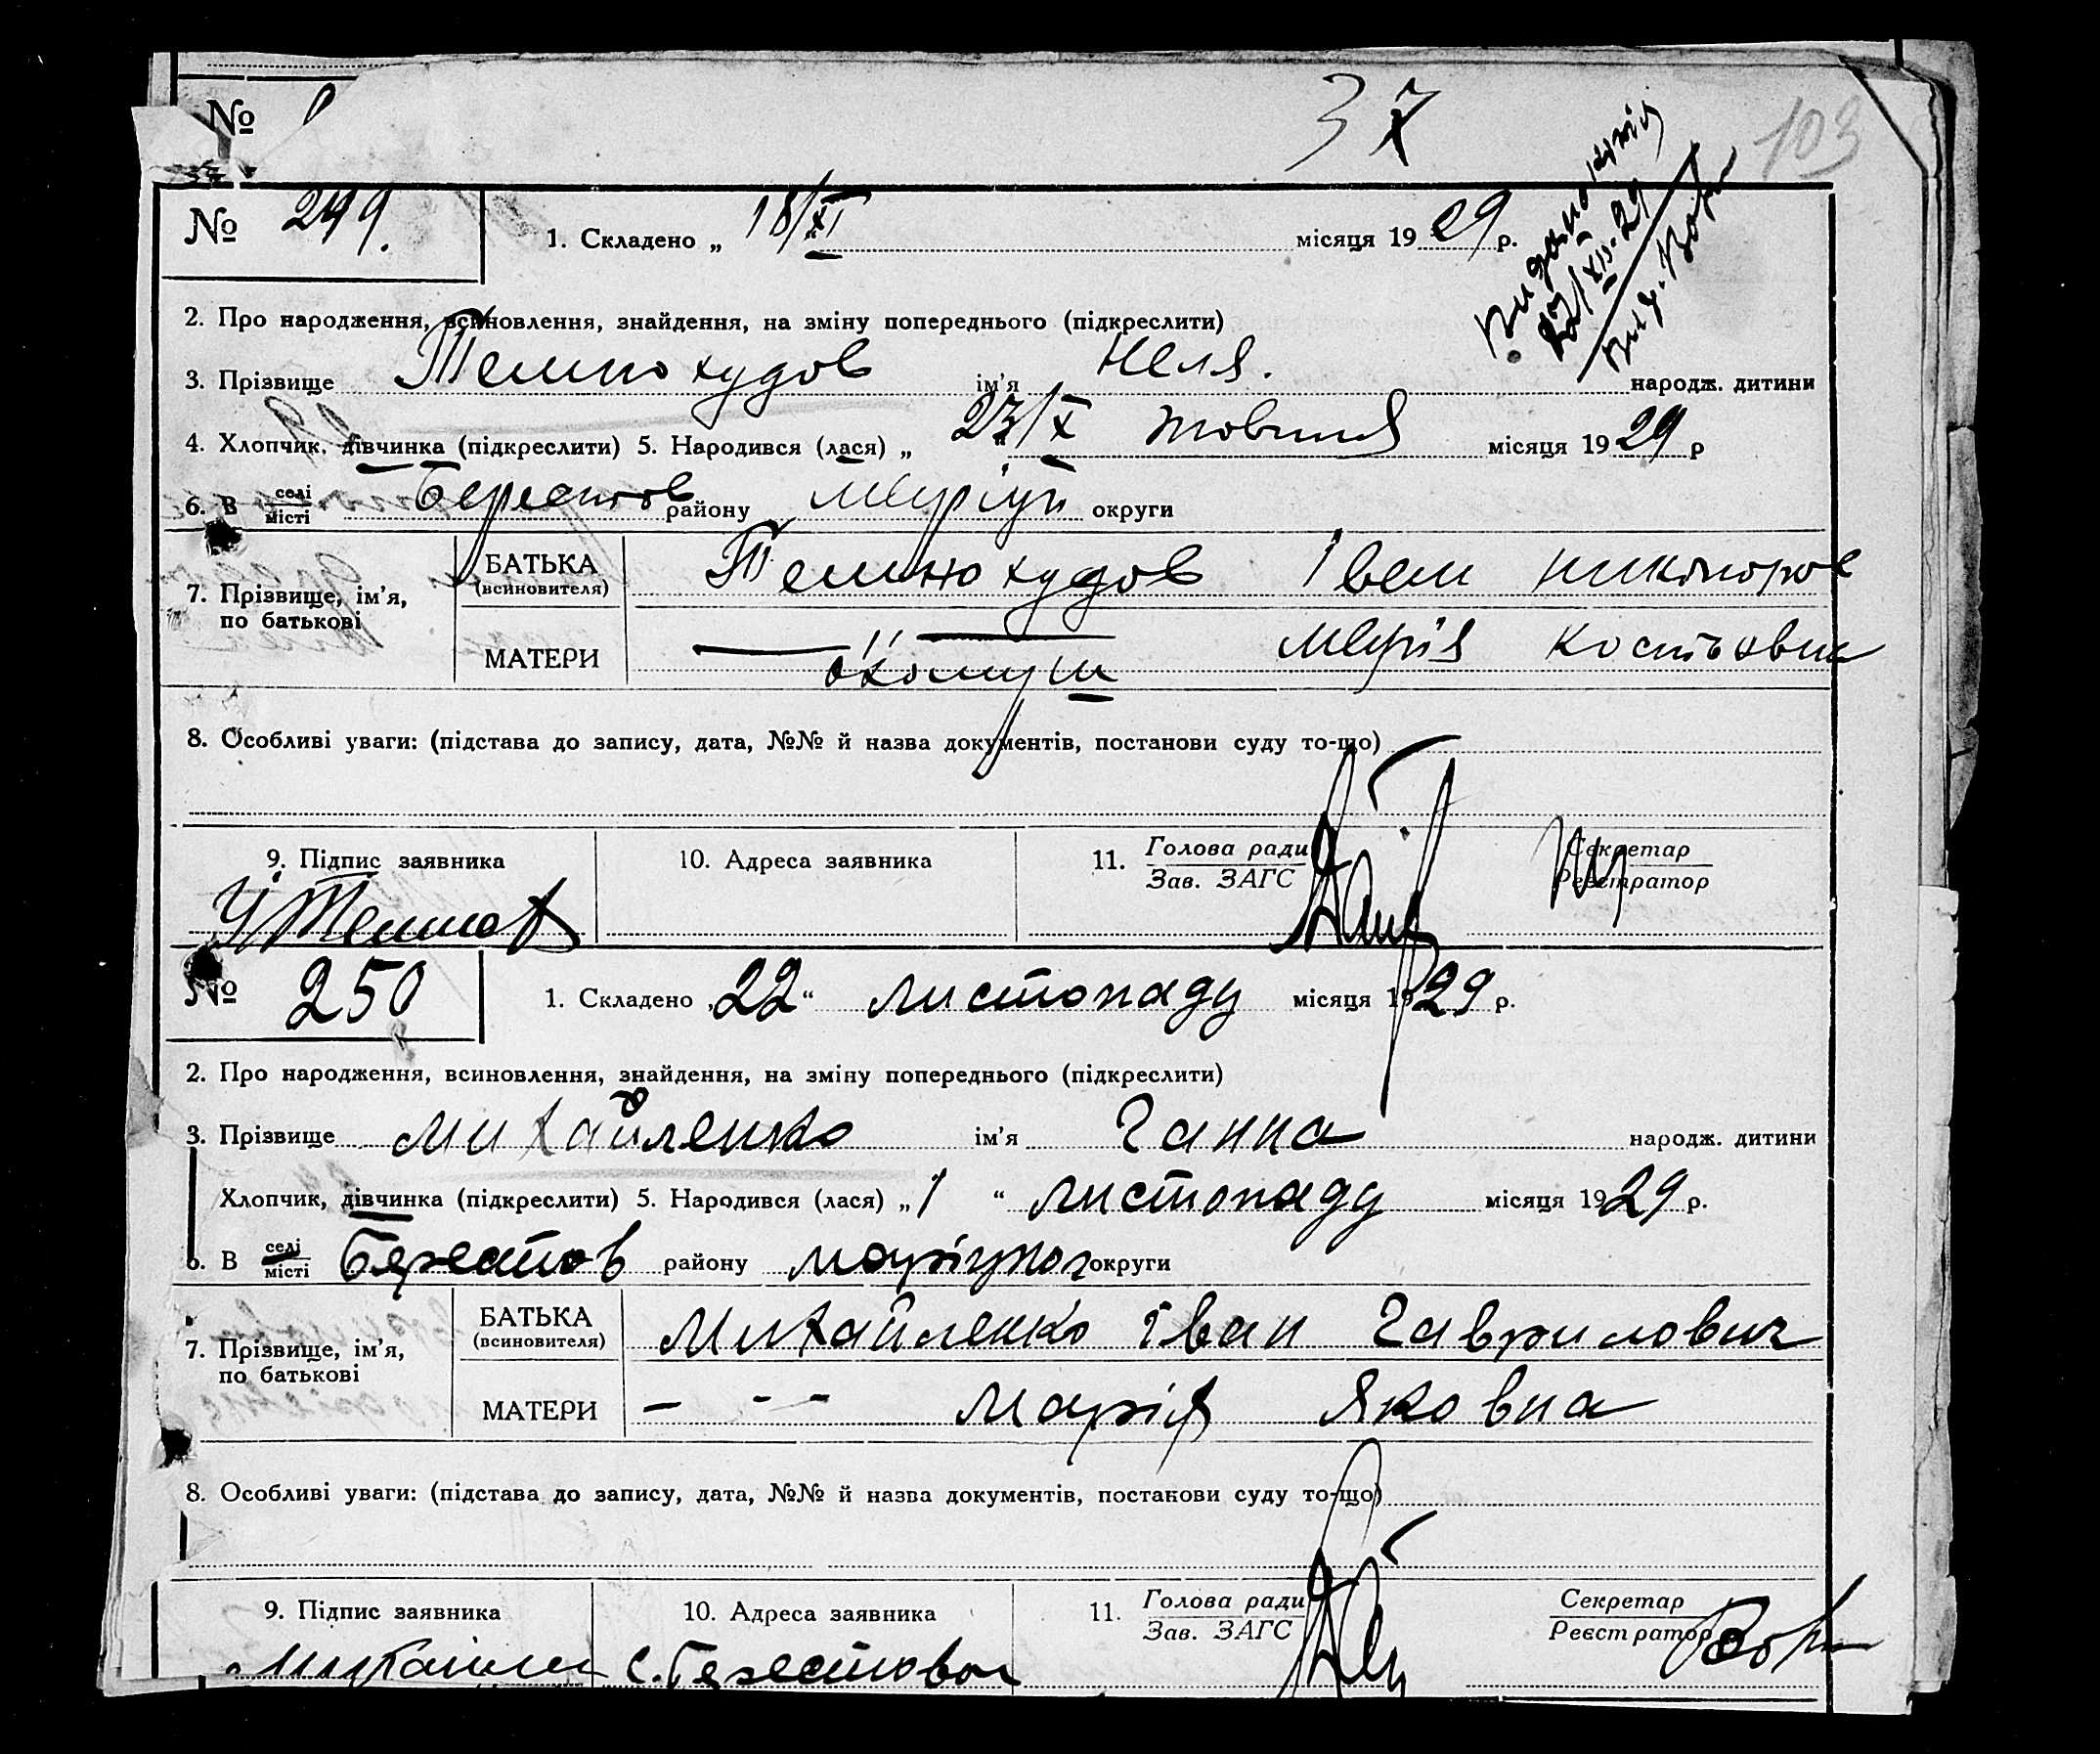 №
37
103
№ 249.
1. Складено „ 18/XI місяця 1929 р.
Видано
22/XII-29
2. Про народження, всиновлення, знайдення, на зміну попереднього (підкреслити)
3. Прізвище Темнохудов ім'я Неля. народж. дитини
4. Хлопчик, дівчинка (підкреслити) 5. Народився (лася) „ 23/X жовтня місяця 1929 р
6. В селі/місті Берестов району Маріуп округи
7. Прізвище, ім'я, по батькові
БАТЬКА (всиновителя) Темнохудов Іван Никоноров
МАТЕРИ — " — Марія Костьовна
8. Особливі уваги: (підстава до запису, дата, №№ й назва документів, постанови суду то-що)
9. Підпис заявника 10. Адреса заявника 11. Голова ради Секретар
Зав. ЗАГС Реєстратор
№ 250
1. Складено „22“ листопаду місяця 1929 р.
2. Про народження, всиновлення, знайдення, на зміну попереднього (підкреслити)
3. Прізвище Михайленко ім'я Ганна народж. дитини
Хлопчик, дівчинка (підкреслити) 5. Народився (лася) „1“ листопаду місяця 1929 р.
6. В селі/місті Берестов району маріупол округи
7. Прізвище, ім'я, по батькові
БАТЬКА (всиновителя) Михайленко Іван Гаврилович
МАТЕРИ - - - Марія Яковна
8. Особливі уваги: (підстава до запису, дата, №№ й назва документів, постанови суду то-що)
9. Підпис заявника 10. Адреса заявника 11. Голова ради Секретар
Зав. ЗАГС Реєстратор
с. Берестовое